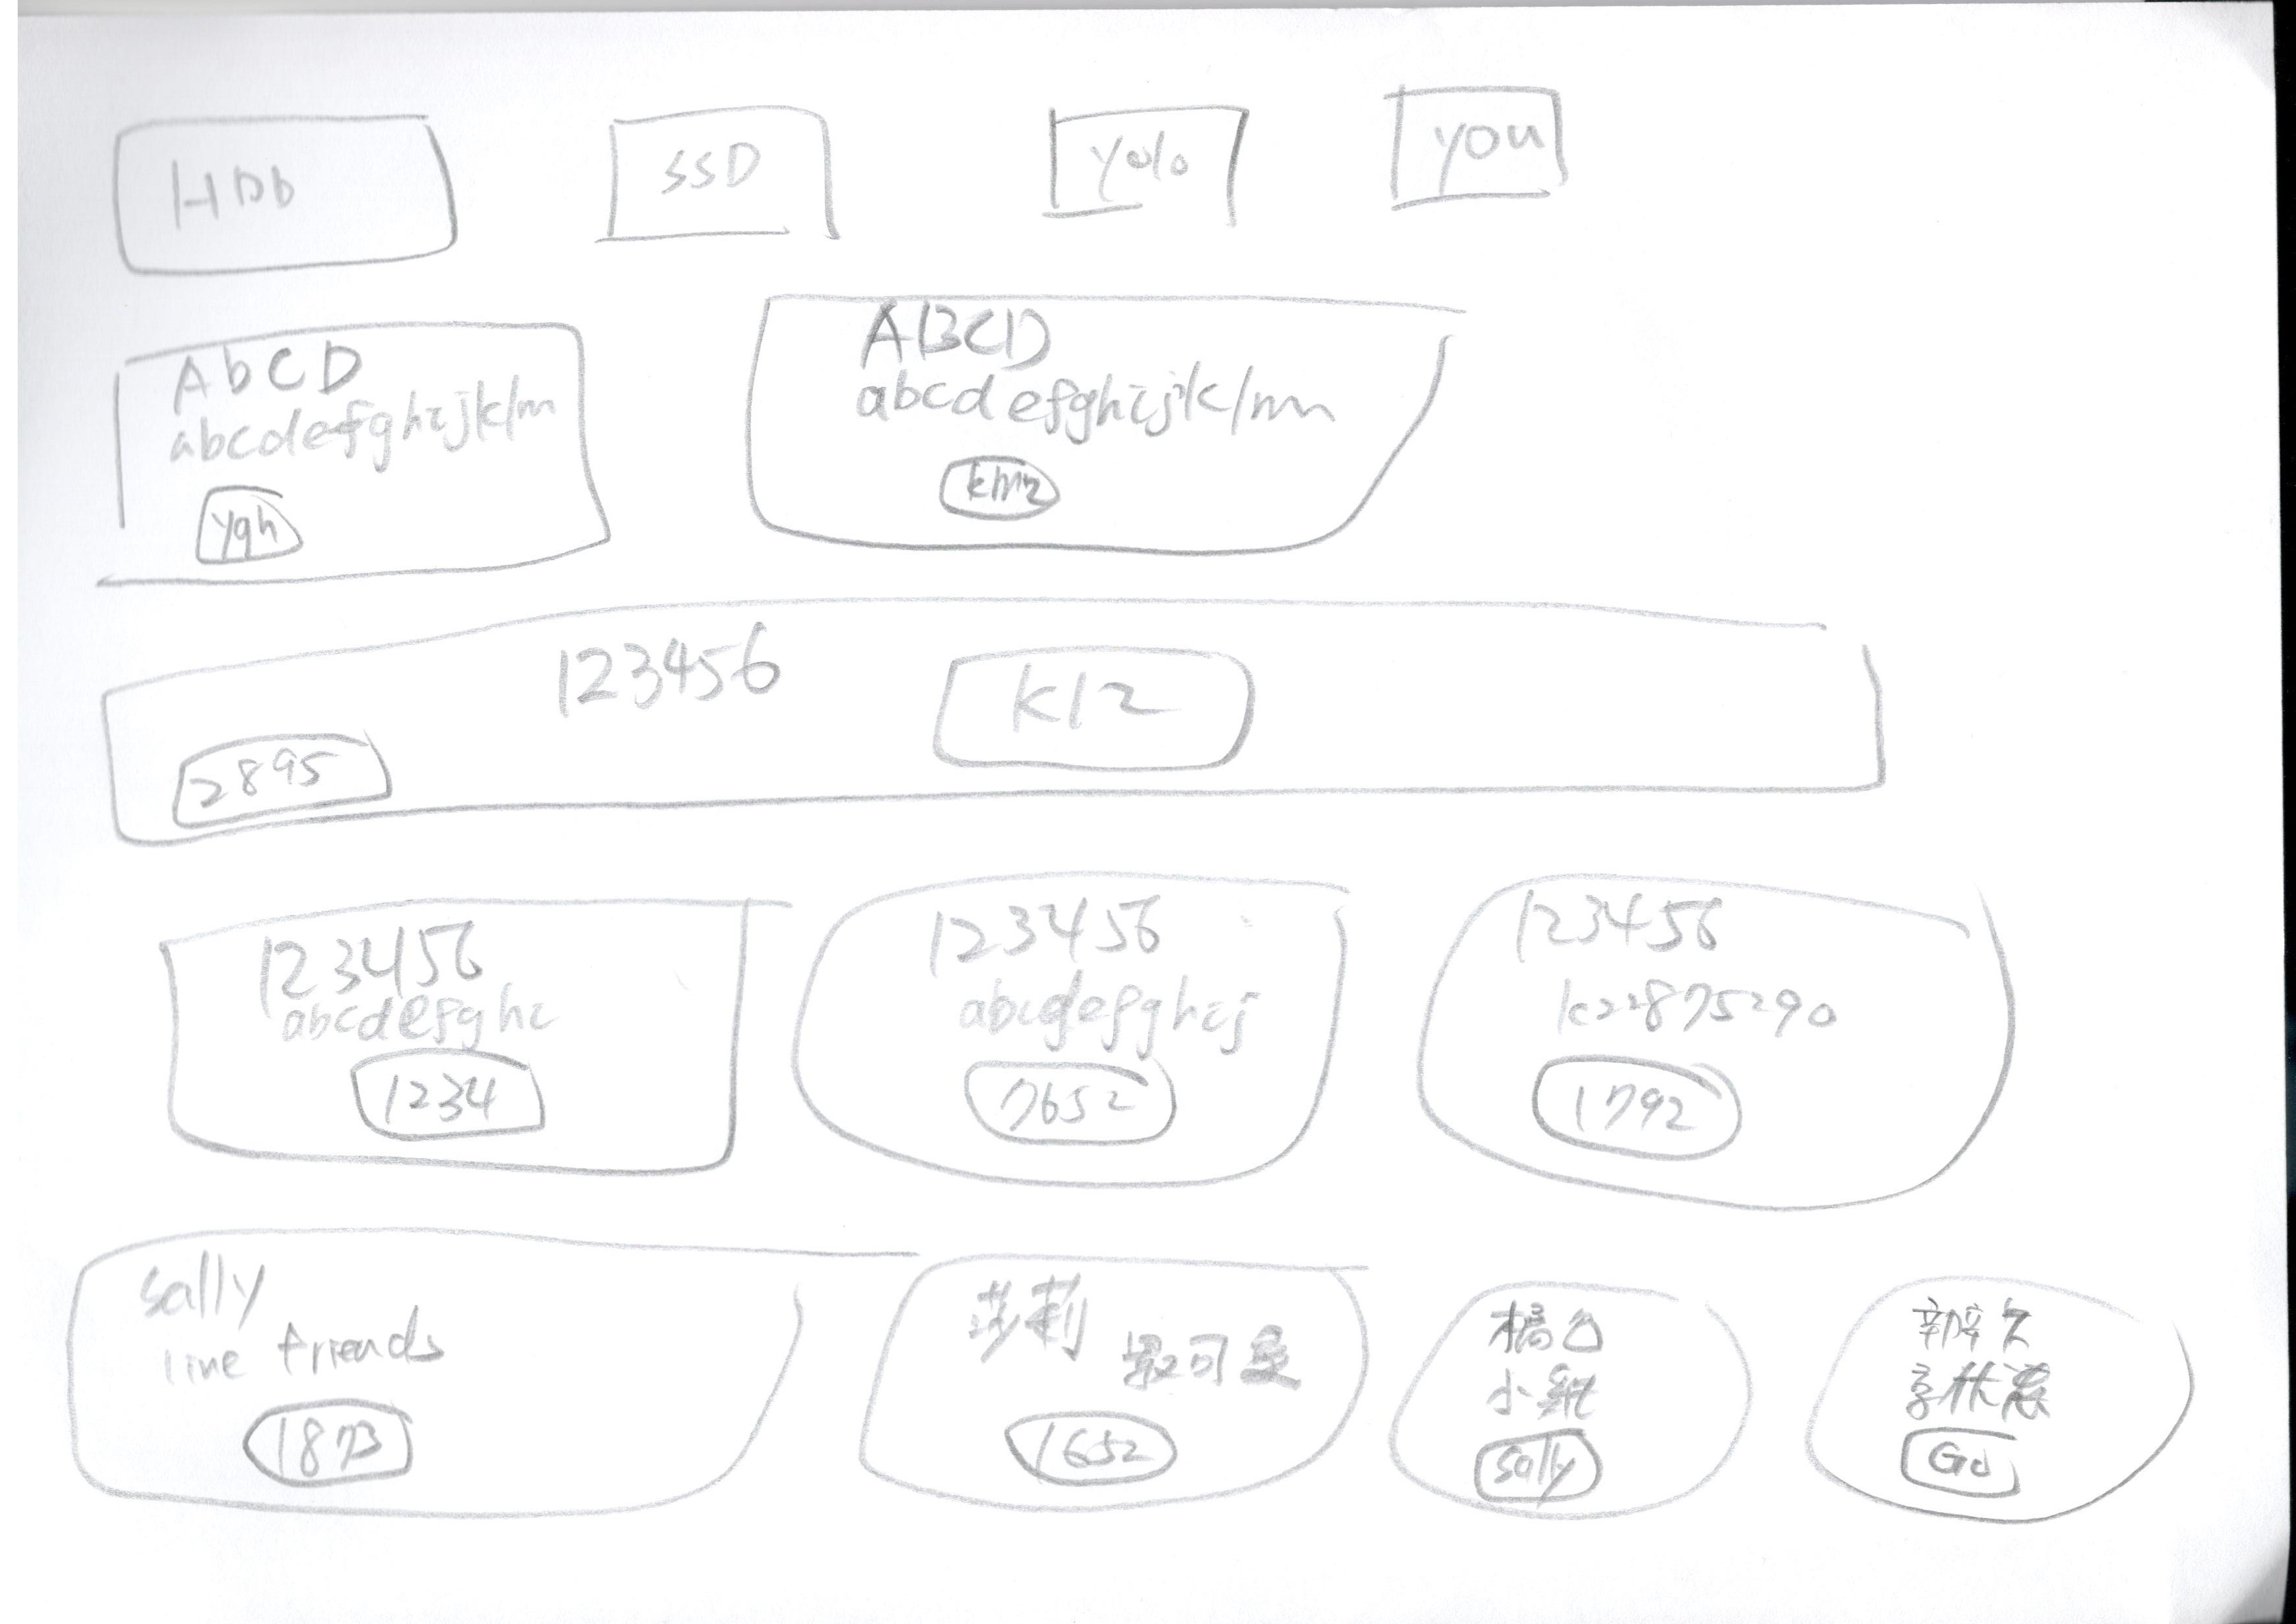 HDD
SSD
yolo
you
AbCD
abcdefghijklm
ygh
ABCD
abcdefghijklmn
km2
123456
k12
2895
123456
abcdefghi
1234
123456
abcdefghij
7652
123456
k22875290
1792
sally
line friends
1873
莎莉
最可愛
1652
橘色
小
sally
辦
Go